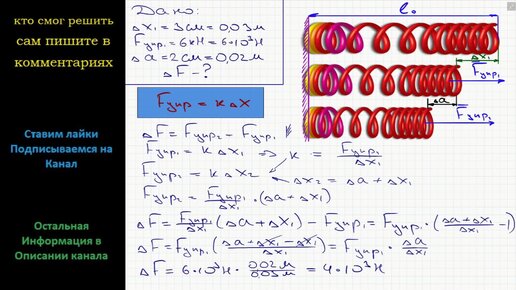 кто смог решить
сам пишите в
комментариях
Ставим лайки
Подписываемся на
Канал
Остальная
Информация в
Описании канала
Дано:
Δx₁ = 3 см = 0,03 м
Fупр₁ = 6 кН = 6·10³ Н
Δa = 2 см = 0,02 м
ΔF - ?
Fупр = kΔx
ΔF = Fупр₂ - Fупр₁
Fупр₁ = kΔx₁ => k = Fупр₁/Δx₁
Fупр₂ = kΔx₂ Δx₂ = Δa + Δx₁
Fупр₂ = Fупр₁/Δx₁ · (Δa + Δx₁)
ΔF = Fупр₁/Δx₁ (Δa + Δx₁) - Fупр₁ = Fупр₁ · ((Δa + Δx₁)/Δx₁ - 1)
ΔF = Fупр₁ ((Δa + Δx₁ - Δx₁)/Δx₁) = Fупр₁ · Δa/Δx₁
ΔF = 6·10³ Н · 0,02 м/0,03 м = 4·10³ Н
l₀
Δx₁
Fупр₁
Δa
Fупр₂